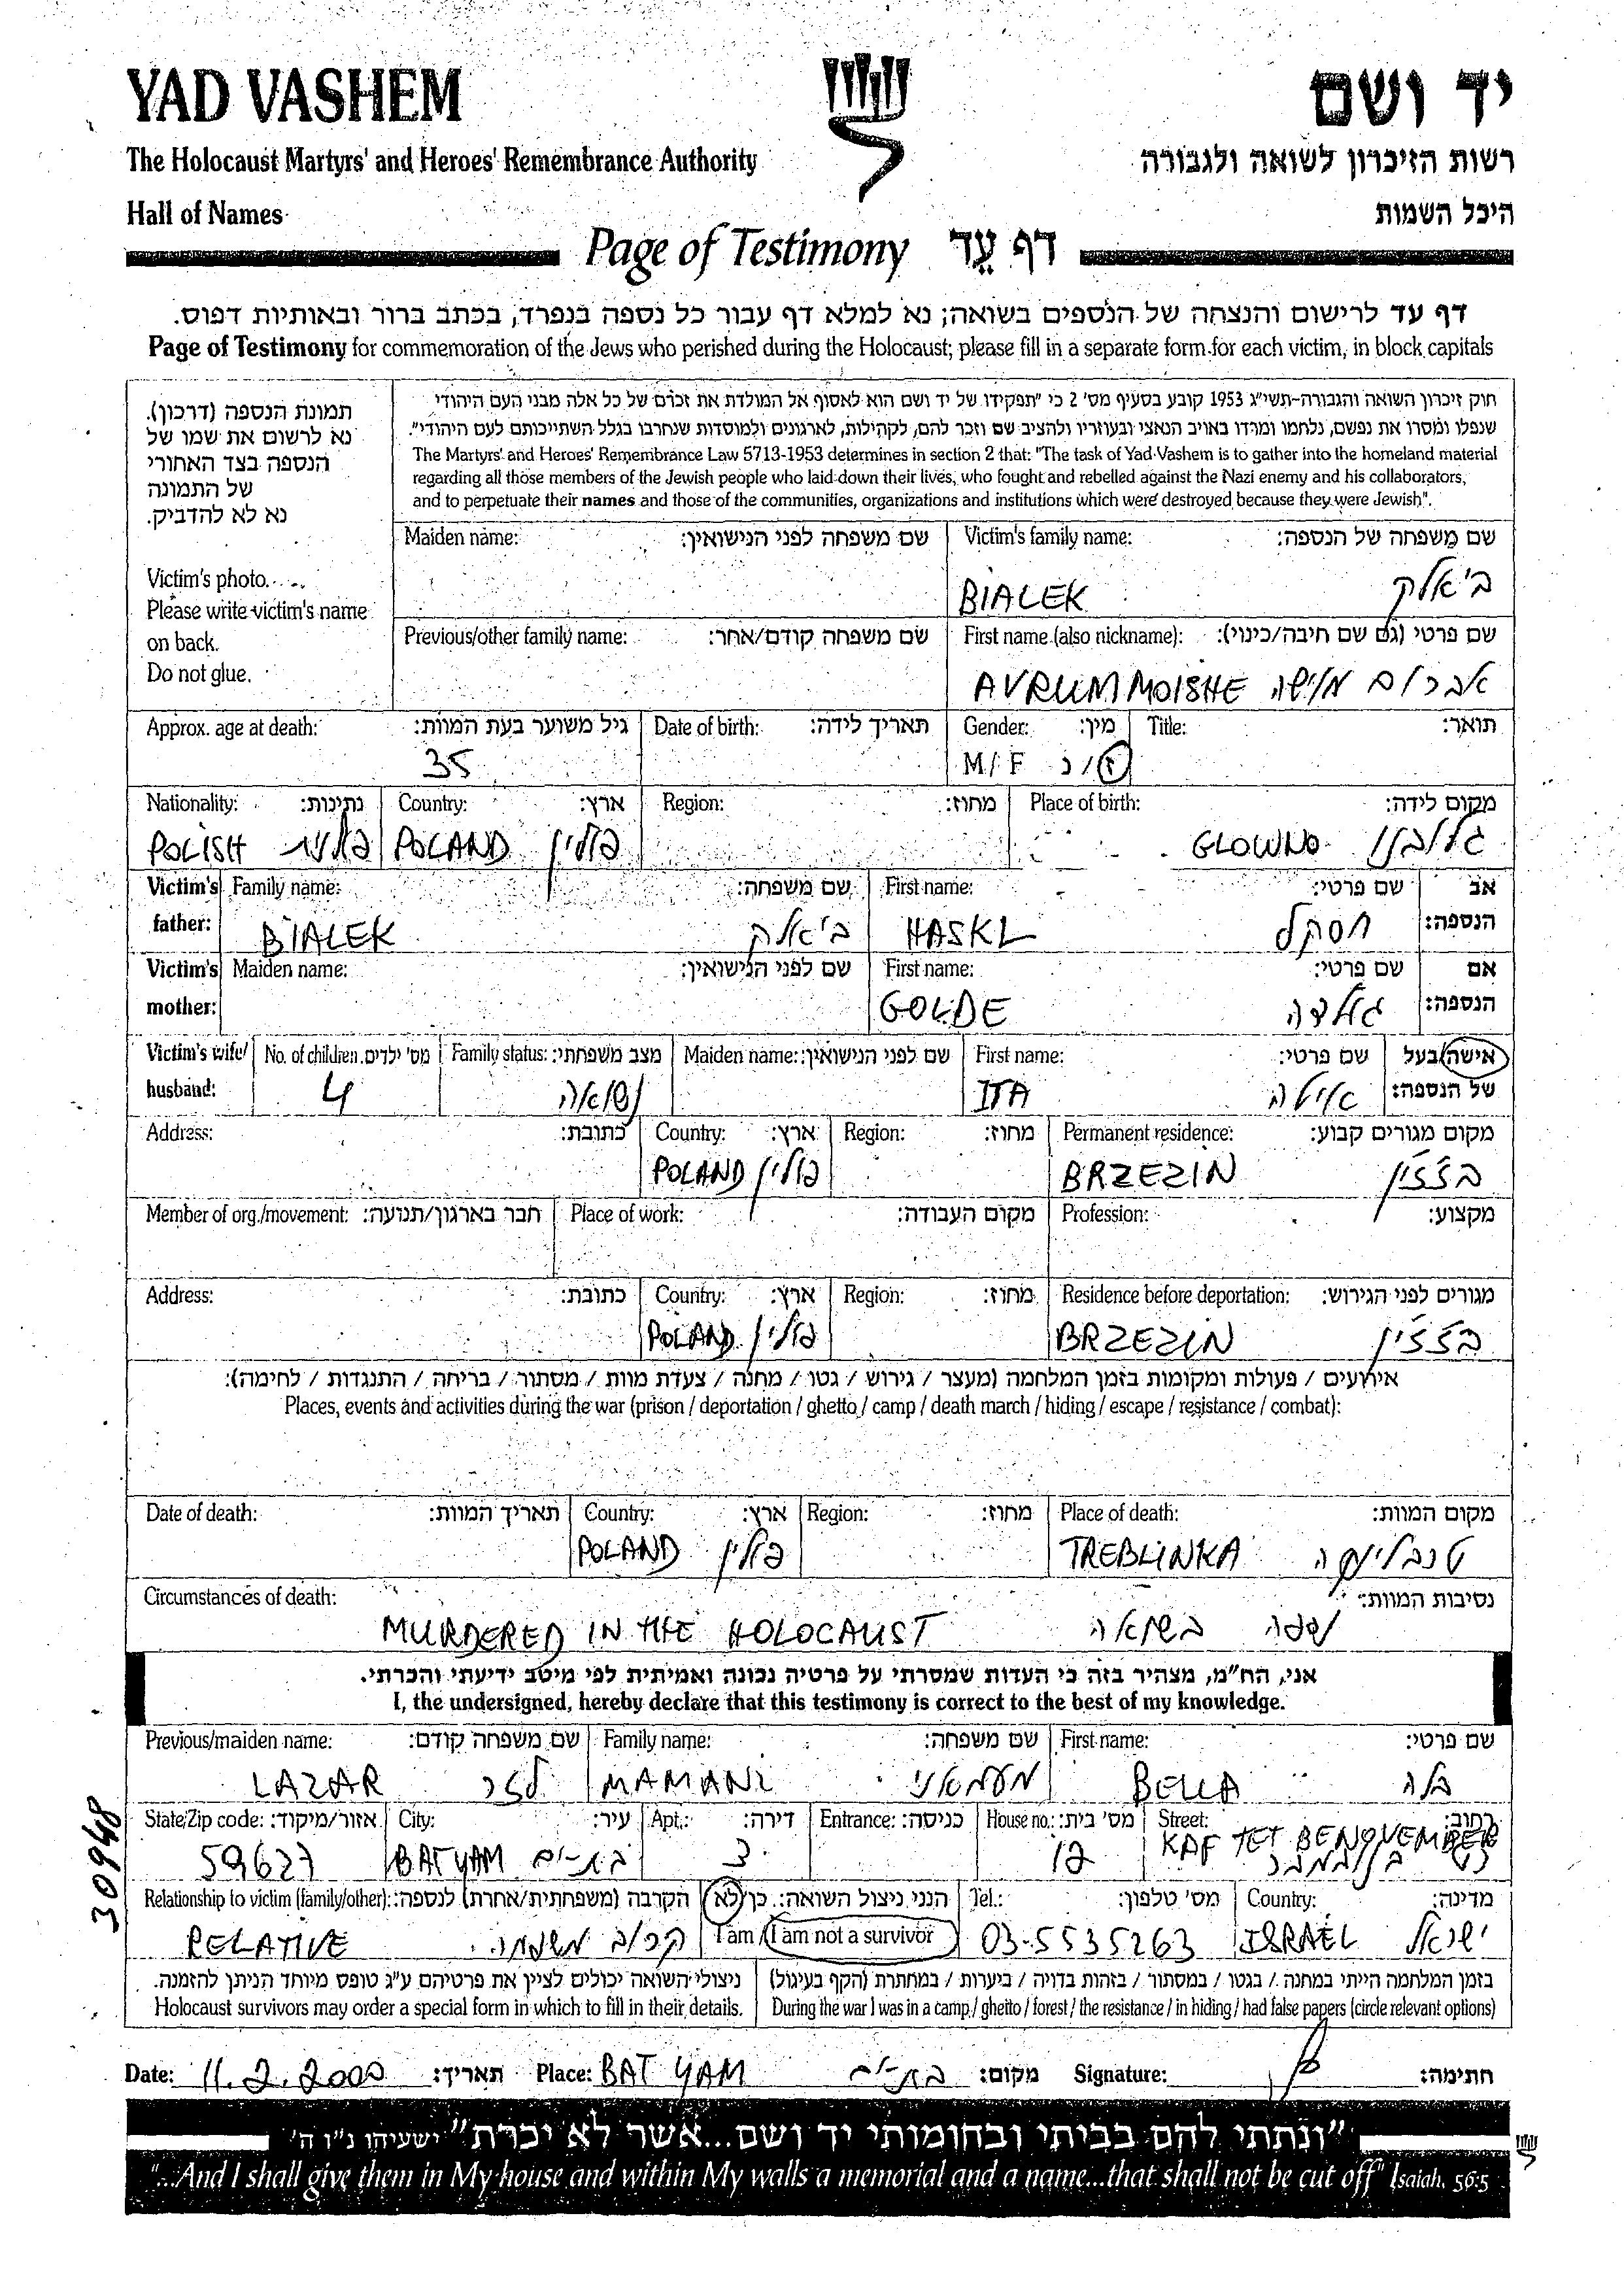 YAD VASHEM יד ושם
The Holocaust Martyrs' and Heroes' Remembrance Authority רשות הזיכרון לשואה ולגבורה
Hall of Names היכל השמות
Page of Testimony דף עֵד
דף עד לרישום והנצחה של הנספים בשואה; נא למלא דף עבור כל נספה בנפרד, בכתב ברור ובאותיות דפוס.
Page of Testimony for commemoration of the Jews who perished during the Holocaust; please fill in a separate form for each victim, in block capitals
תמונת הנספה (דרכון).
נא לרשום את שמו של
הנספה בצד האחורי
של התמונה
נא לא להדביק.
Victim's photo.
Please write victim's name
on back.
Do not glue.
חוק זיכרון השואה והגבורה-תשי"ג 1953 קובע בסעיף מס' 2 כי "תפקידו של יד ושם הוא לאסוף אל המולדת את זכרם של כל אלה מבני העם היהודי
שנפלו ומסרו את נפשם, נלחמו ומרדו באויב הנאצי ובעוזריו ולהציב שם וזכר להם, לקהילות, לארגונים ולמוסדות שנחרבו בגלל השתייכותם לעם היהודי".
The Martyrs' and Heroes' Remembrance Law 5713-1953 determines in section 2 that: "The task of Yad Vashem is to gather into the homeland material
regarding all those members of the Jewish people who laid down their lives, who fought and rebelled against the Nazi enemy and his collaborators,
and to perpetuate their names and those of the communities, organizations and institutions which were destroyed because they were Jewish".
Maiden name: שם משפחה לפני הנישואין: Victim's family name: שם משפחה של הנספה:
BIALEK ביאלק
Previous/other family name: שם משפחה קודם/אחר: First name (also nickname): שם פרטי (גם שם חיבה/כינוי):
AVRUM MOISHE אברום מוישה
Approx. age at death: גיל משוער בעת המוות: Date of birth: תאריך לידה: Gender: מין: Title: תואר:
35 M/F ז/נ
Nationality: נתינות: Country: ארץ: Region: מחוז: Place of birth: מקום לידה:
POLISH POLAND פולין GLOWNO גלובנו
Victim's Family name: שם משפחה: First name: שם פרטי: אב
father: BIALEK ביאלק HASKL חסקל הנספה:
Victim's Maiden name: שם לפני הנישואין: First name: שם פרטי: אם
mother: GOLDE גולדה הנספה:
Victim's wife/ No. of children מס' ילדים. Family status: מצב משפחתי: Maiden name: שם לפני הנישואין: First name: שם פרטי: אישה/בעל
husband: 4 נשואה ITA איטה של הנספה:
Address: כתובת: Country: ארץ: Region: מחוז: Permanent residence: מקום מגורים קבוע:
POLAND פולין BRZEZIN בזזין
Member of org./movement: חבר בארגון/תנועה: Place of work: מקום העבודה: Profession: מקצוע:
Address: כתובת: Country: ארץ: Region: מחוז: Residence before deportation: מגורים לפני הגירוש:
POLAND פולין BRZEZIN בזזין
אירועים / פעולות ומקומות בזמן המלחמה (מעצר / גירוש / גטו / מחנה / צעדת מוות / מסתור / בריחה / התנגדות / לחימה):
Places, events and activities during the war (prison / deportation / ghetto / camp / death march / hiding / escape / resistance / combat):
Date of death: תאריך המוות: Country: ארץ: Region: מחוז: Place of death: מקום המוות:
POLAND פולין TREBLINKA
Circumstances of death: נסיבות המוות:
MURDERED IN THE HOLOCAUST נספה בשואה
אני, הח"מ, מצהיר בזה כי העדות שמסרתי על פרטיה נכונה ואמיתית לפי מיטב ידיעתי והכרתי.
I, the undersigned, hereby declare that this testimony is correct to the best of my knowledge.
Previous/maiden name: שם משפחה קודם: Family name: שם משפחה: First name: שם פרטי:
LAZAR לזר MAMANI מעמאני BELLA בלה
State/Zip code: אזור/מיקוד: City: עיר: Apt.: דירה: Entrance: כניסה: House no.: מס' בית: Street: רחוב:
59627 BAT YAM בת-ים 3 12 KAF TET BENOVEMBER
כט בנובמבר
Relationship to victim (family/other): הקרבה (משפחתית/אחרת) לנספה: הנני ניצול השואה: כן/לא Tel.: מס' טלפון: Country: מדינה:
RELATIVE קרוב משפחה I am / I am not a survivor 03-5535263 ISRAEL ישראל
ניצולי השואה יכולים לציין את פרטיהם ע"ג טופס מיוחד הניתן להזמנה. בזמן המלחמה הייתי במחנה / בגטו / במסתור / בזהות בדויה / ביערות / במחתרת (הקף בעיגול)
Holocaust survivors may order a special form in which to fill in their details. During the war I was in a camp / ghetto / forest / the resistance / in hiding / had false papers (circle relevant options)
Date: 11.2.2000 תאריך: Place: BAT YAM בת-ים מקום: Signature: חתימה:
"ונתתי להם בביתי ובחומותי יד ושם...אשר לא יכרת" ישעיהו נ"ו ה'
"...And I shall give them in My house and within My walls a memorial and a name...that shall not be cut off" Isaiah, 56:5
309948